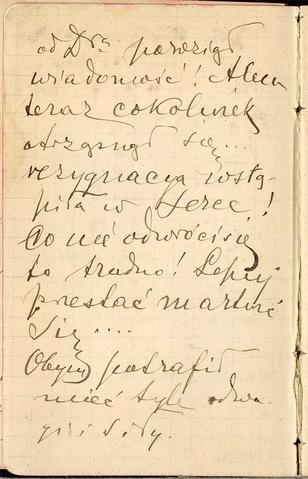 od Dra powziął
wiadomość! Alem
teraz cokolwiek
otrząsnął się...
rezygnacya wstą-
piła w serce!
Co nie odwróci się
to trudno! Lepiej
przestać martwić
się....
Obym potrafił
mieć tyle odwa-
gi i siły.